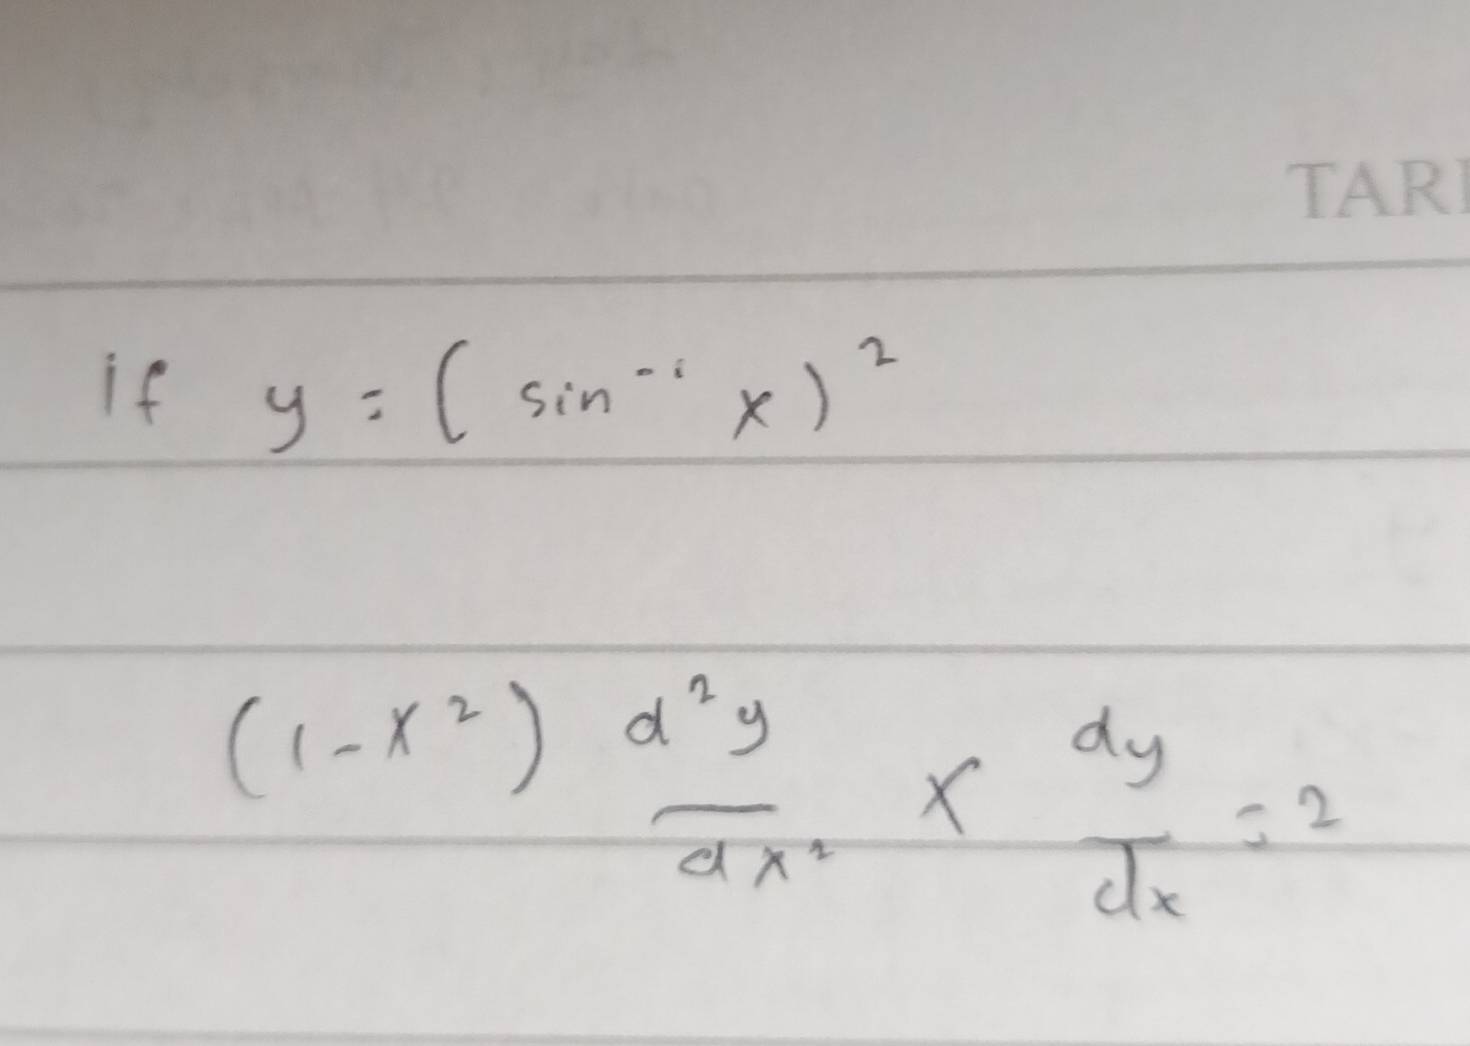 TARI
if y = (sin⁻¹ x)²
(1-x²) d²y/dx² x dy/dx = 2